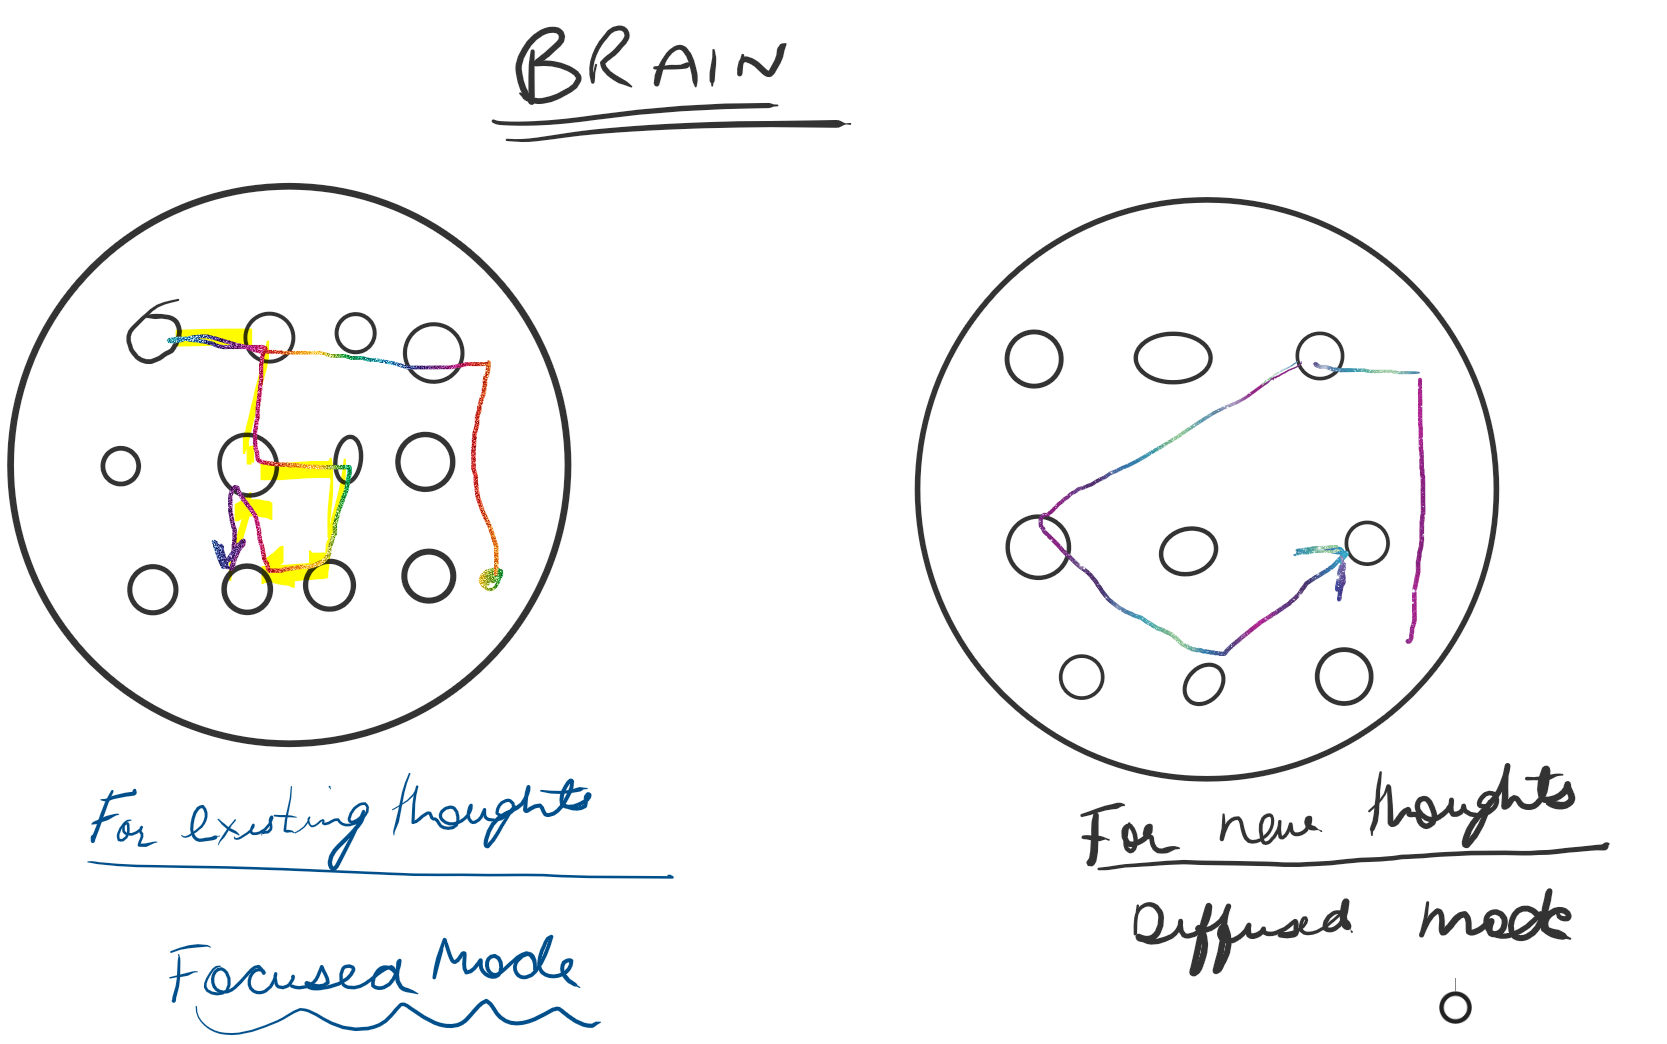 BRAIN
For existing thoughts
Focused Mode
For new thoughts
Diffused mode